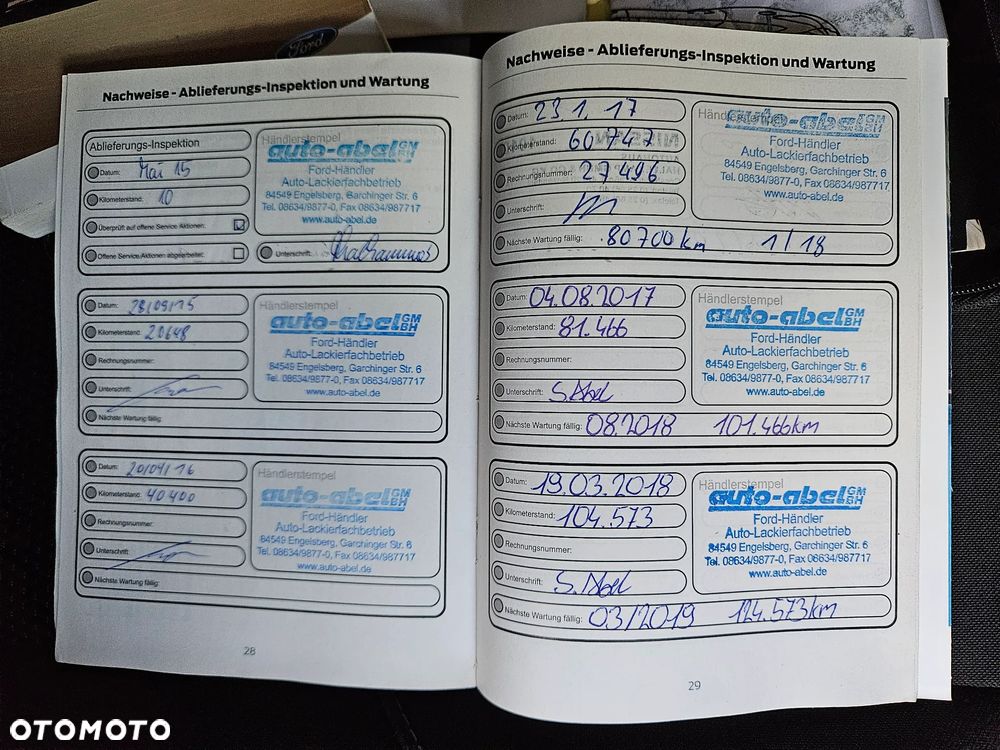 Ford
Nachweise - Ablieferungs-Inspektion und Wartung
Ablieferungs-Inspektion
Datum: Mai 15
Kilometerstand: 10
Überprüft auf offene Service Aktionen:
Offene Service Aktionen abgearbeitet:
Händlerstempel
auto-abel GM BH
Ford-Händler
Auto-Lackierfachbetrieb
84549 Engelsberg, Garchinger Str. 6
Tel. 08634/9877-0, Fax 08634/987717
www.auto-abel.de
Unterschrift:
Datum: 28/09/15
Kilometerstand: 20648
Rechnungsnummer:
Unterschrift:
Nächste Wartung fällig:
Händlerstempel
auto-abel GM BH
Ford-Händler
Auto-Lackierfachbetrieb
84549 Engelsberg, Garchinger Str. 6
Tel. 08634/9877-0, Fax 08634/987717
www.auto-abel.de
Datum: 20/04/16
Kilometerstand: 40400
Rechnungsnummer:
Unterschrift:
Nächste Wartung fällig:
Händlerstempel
auto-abel GM BH
Ford-Händler
Auto-Lackierfachbetrieb
84549 Engelsberg, Garchinger Str. 6
Tel. 08634/9877-0, Fax 08634/987717
www.auto-abel.de
28
Nachweise - Ablieferungs-Inspektion und Wartung
Datum: 23.1.17
Kilometerstand: 60747
Rechnungsnummer: 27496
Unterschrift:
Nächste Wartung fällig: 80700 km 1/18
Händlerstempel
auto-abel GM BH
Ford-Händler
Auto-Lackierfachbetrieb
84549 Engelsberg, Garchinger Str. 6
Tel. 08634/9877-0, Fax 08634/987717
www.auto-abel.de
Datum: 04.08.2017
Kilometerstand: 81.466
Rechnungsnummer:
Unterschrift: S. Abel
Nächste Wartung fällig: 08.2018 101.466km
Händlerstempel
auto-abel GM BH
Ford-Händler
Auto-Lackierfachbetrieb
84549 Engelsberg, Garchinger Str. 6
Tel. 08634/9877-0, Fax 08634/987717
www.auto-abel.de
Datum: 19.03.2018
Kilometerstand: 104.573
Rechnungsnummer:
Unterschrift: S. Abel
Nächste Wartung fällig: 03/2019 124.573km
Händlerstempel
auto-abel GM BH
Ford-Händler
Auto-Lackierfachbetrieb
84549 Engelsberg, Garchinger Str. 6
Tel. 08634/9877-0, Fax 08634/987717
www.auto-abel.de
29
OTOMOTO